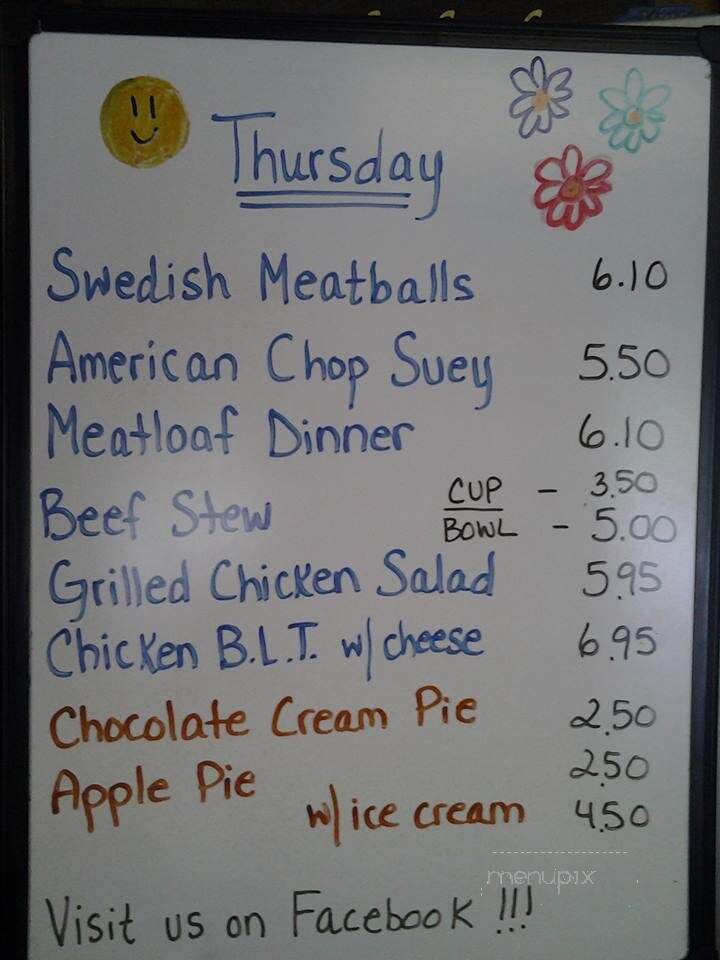 Thursday
Swedish Meatballs 6.10
American Chop Suey 5.50
Meatloaf Dinner 6.10
Beef Stew CUP - 3.50
BOWL - 5.00
Grilled Chicken Salad 5.95
Chicken B.L.T. w/ cheese 6.95
Chocolate Cream Pie 2.50
Apple Pie 2.50
w/ ice cream 4.50
menupix
Visit us on Facebook !!!